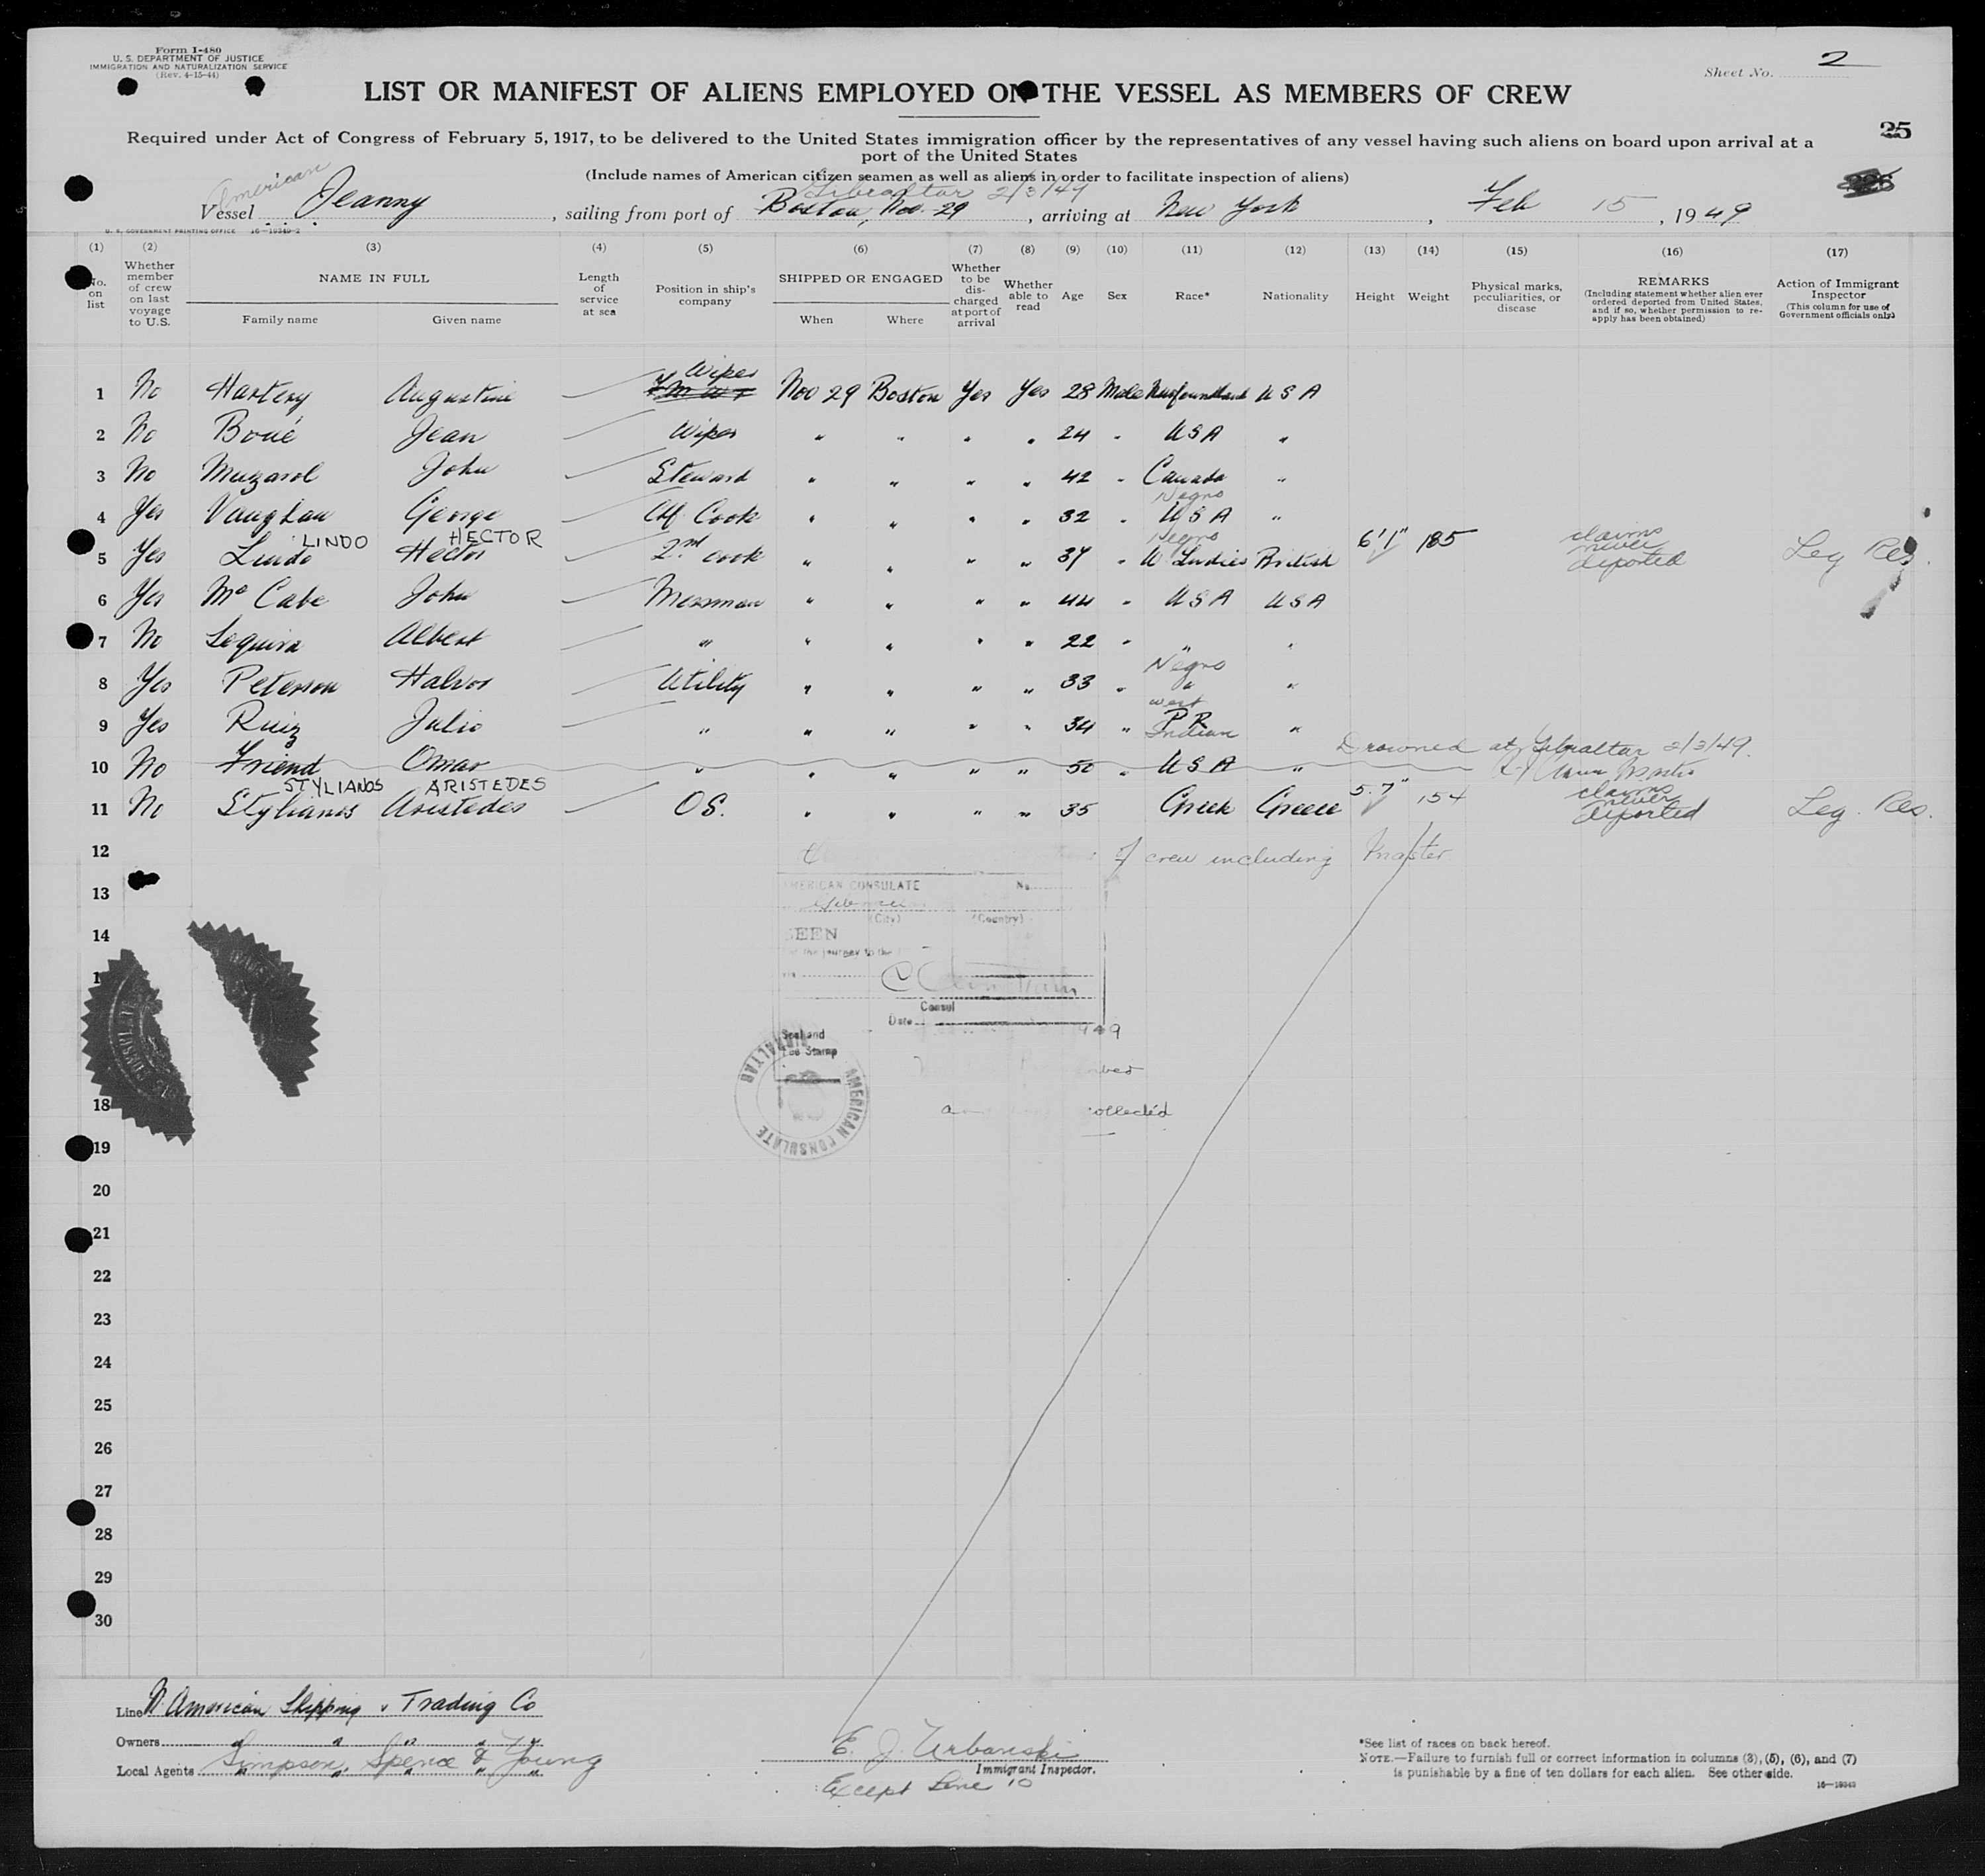 Form I-480
U. S. DEPARTMENT OF JUSTICE
IMMIGRATION AND NATURALIZATION SERVICE
(Rev. 4-15-44)
Sheet No. 2
LIST OR MANIFEST OF ALIENS EMPLOYED ON THE VESSEL AS MEMBERS OF CREW
25
Required under Act of Congress of February 5, 1917, to be delivered to the United States immigration officer by the representatives of any vessel having such aliens on board upon arrival at a
port of the United States
(Include names of American citizen seamen as well as aliens in order to facilitate inspection of aliens)
American Gibraltar 2/3/49
Vessel Jeanny, sailing from port of Boston, Nov. 29, arriving at New York, Feb 15, 1949
U. S. GOVERNMENT PRINTING OFFICE 16—19240-2
(1) (2) (3) (4) (5) (6) (7) (8) (9) (10) (11) (12) (13) (14) (15) (16) (17)
No. on list
Whether member of crew on last voyage to U.S.
NAME IN FULL
Family name
Given name
Length of service at sea
Position in ship's company
SHIPPED OR ENGAGED
When
Where
Whether to be discharged at port of arrival
Whether able to read
Age
Sex
Race*
Nationality
Height
Weight
Physical marks, peculiarities, or disease
REMARKS
(Including statement whether alien ever ordered deported from United States, and if so, whether permission to re-apply has been obtained)
Action of Immigrant Inspector
(This column for use of Government officials only)
Wiper
1 No Hartery Augustine Nov 29 Boston Yes Yes 28 Male Newfoundland U S A
2 No Boué Jean Wiper " " " " 24 " U S A "
3 No Muzarol John Steward " " " " 42 " Canada "
Negro
4 Yes Vaughan George Chf. Cook " " " " 32 " U S A "
LINDO HECTOR Negro
5 Yes Lindo Hector 2nd cook " " " " 37 " W Indies British 6'1" 185 claims never deported Leg Res.
6 Yes McCabe John Messman " " " " 44 " U S A U S A
7 No Sequira Albert " " " " " 22 " " "
Negro
8 Yes Peterson Halvor Utility " " " " 33 " " "
west
9 Yes Ruiz Julio " " " " " 34 " P R "
Indian
Drowned at Gibraltar 2/3/49.
10 No Friend Omar " " " " " 50 " U S A "
STYLIANOS ARISTEDES
11 No Stylianos Aristedes O.S. " " " " 35 Greek Greece 5'7" 154 claims never deported Leg. Res.
12 of crew including Master
13
AMERICAN CONSULATE No.
(City) (Country)
14
SEEN
for the journey to the
Consul
Date 949
Seal and
Fee Stamp
AMERICAN CONSULATE GIBRALTAR
18
collected
19
20
21
22
23
24
25
26
27
28
29
30
Line N. American Shipping & Trading Co
Owners " " " "
Local Agents Simpson, Spence & Young
E. J. Urbanski
Immigrant Inspector.
Except Line 10
*See list of races on back hereof.
NOTE.—Failure to furnish full or correct information in columns (3), (5), (6), and (7)
is punishable by a fine of ten dollars for each alien. See other side.
16—19240